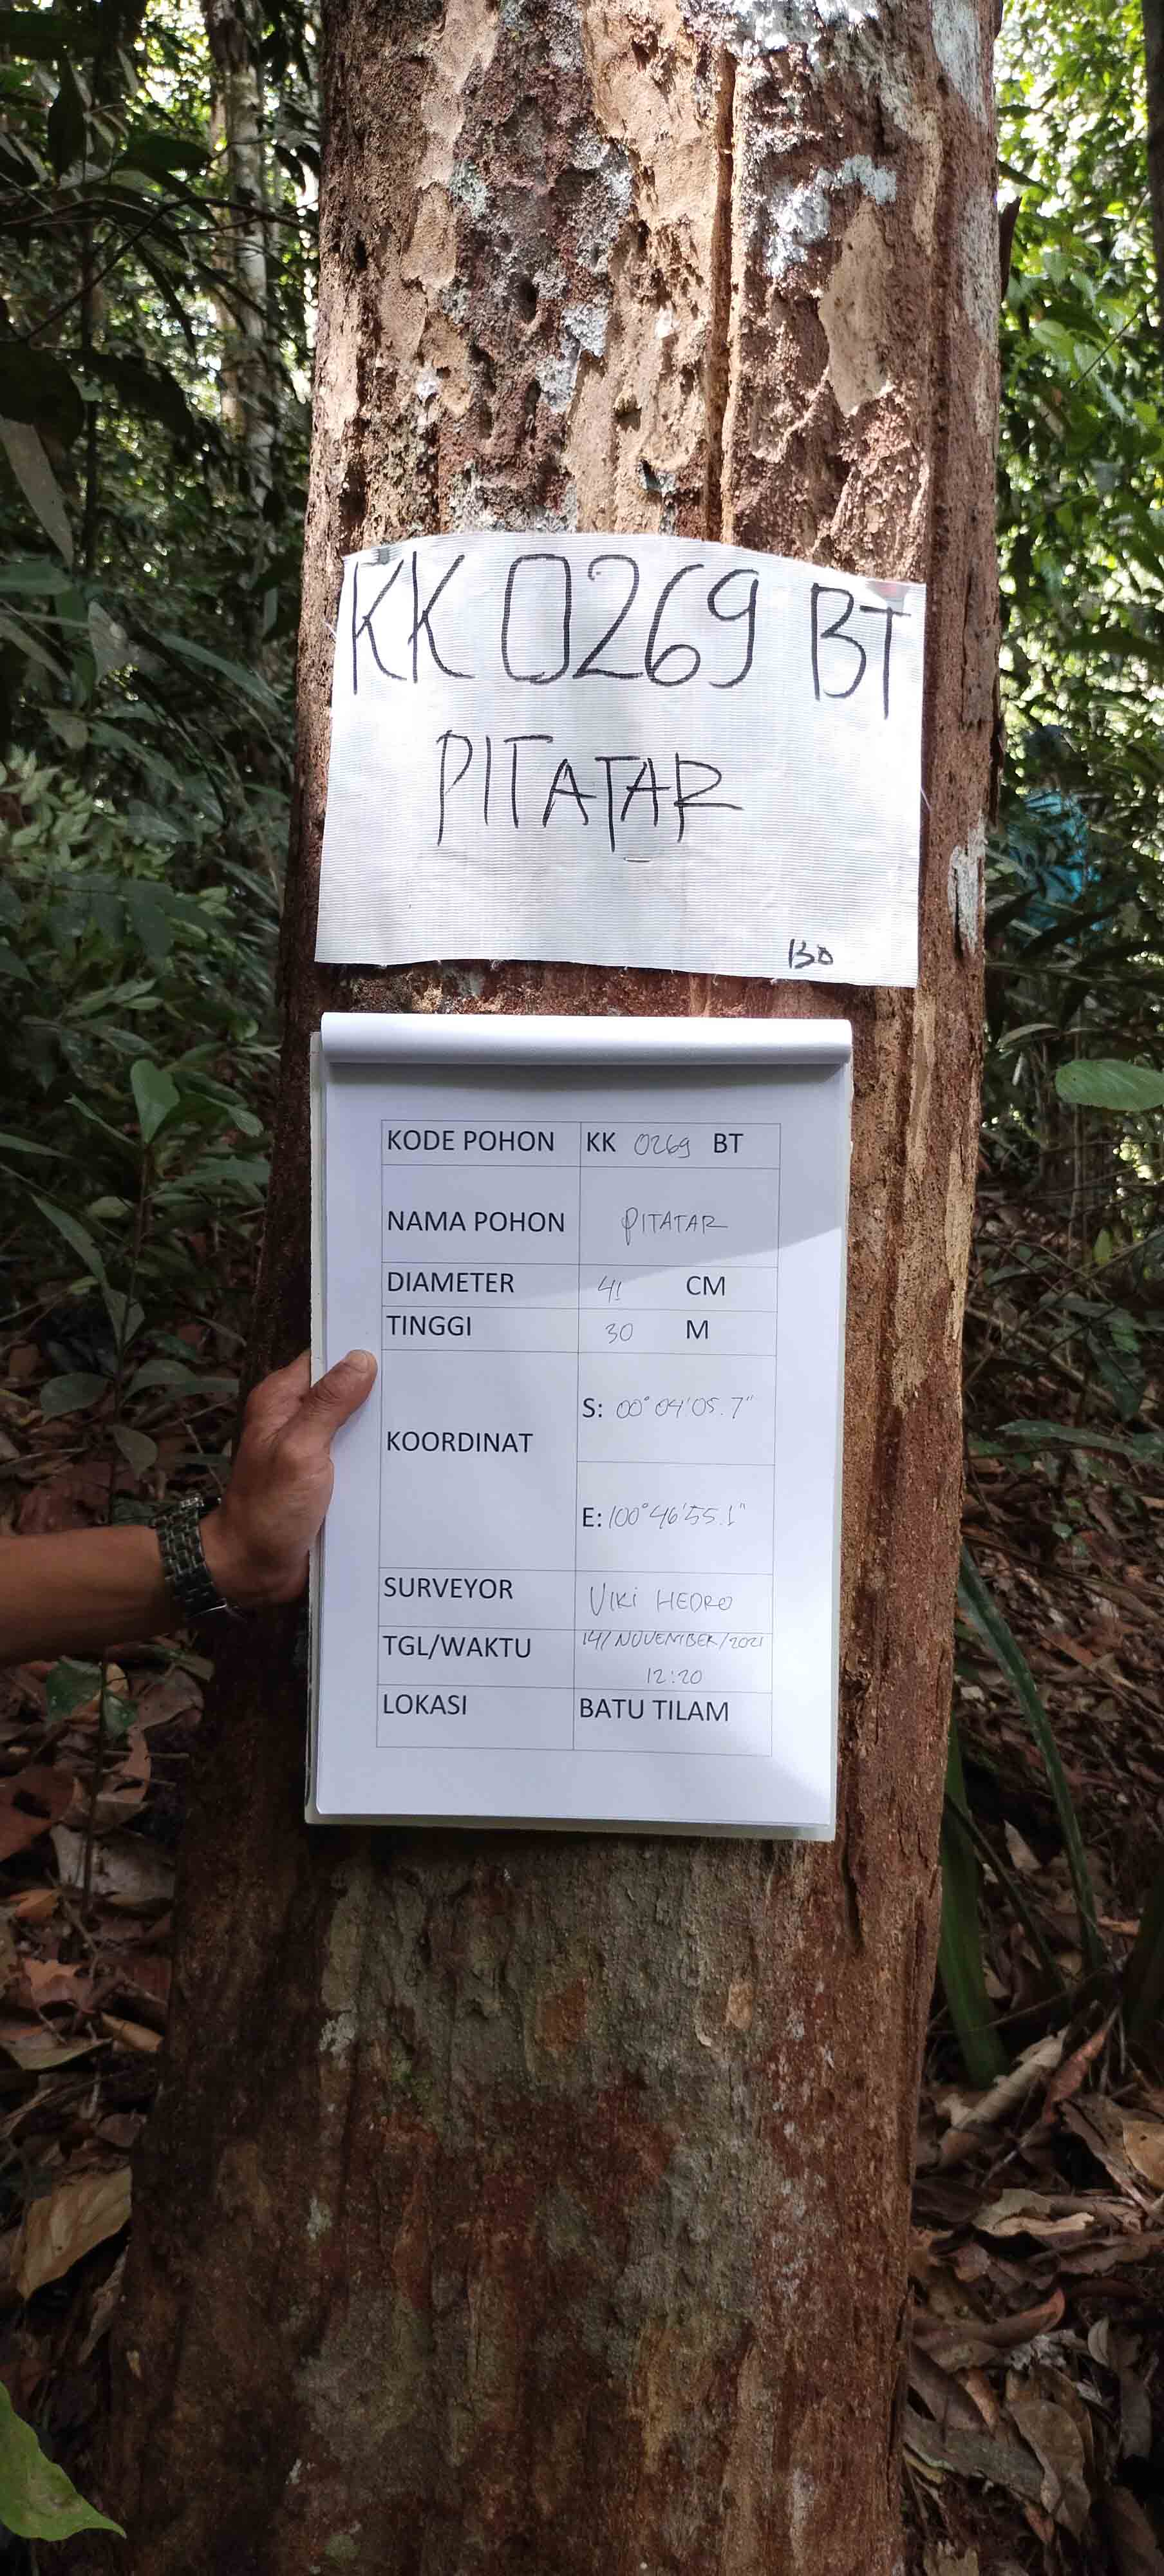 KK 0269 BT
PITATAR
130
KODE POHON KK 0269 BT
NAMA POHON PITATAR
DIAMETER 41 CM
TINGGI 30 M
KOORDINAT
S: 00° 04' 05.7"
E: 100° 46' 55.1"
SURVEYOR VIKI HEDRO
TGL/WAKTU 14/NOVEMBER/2021
12:20
LOKASI BATU TILAM